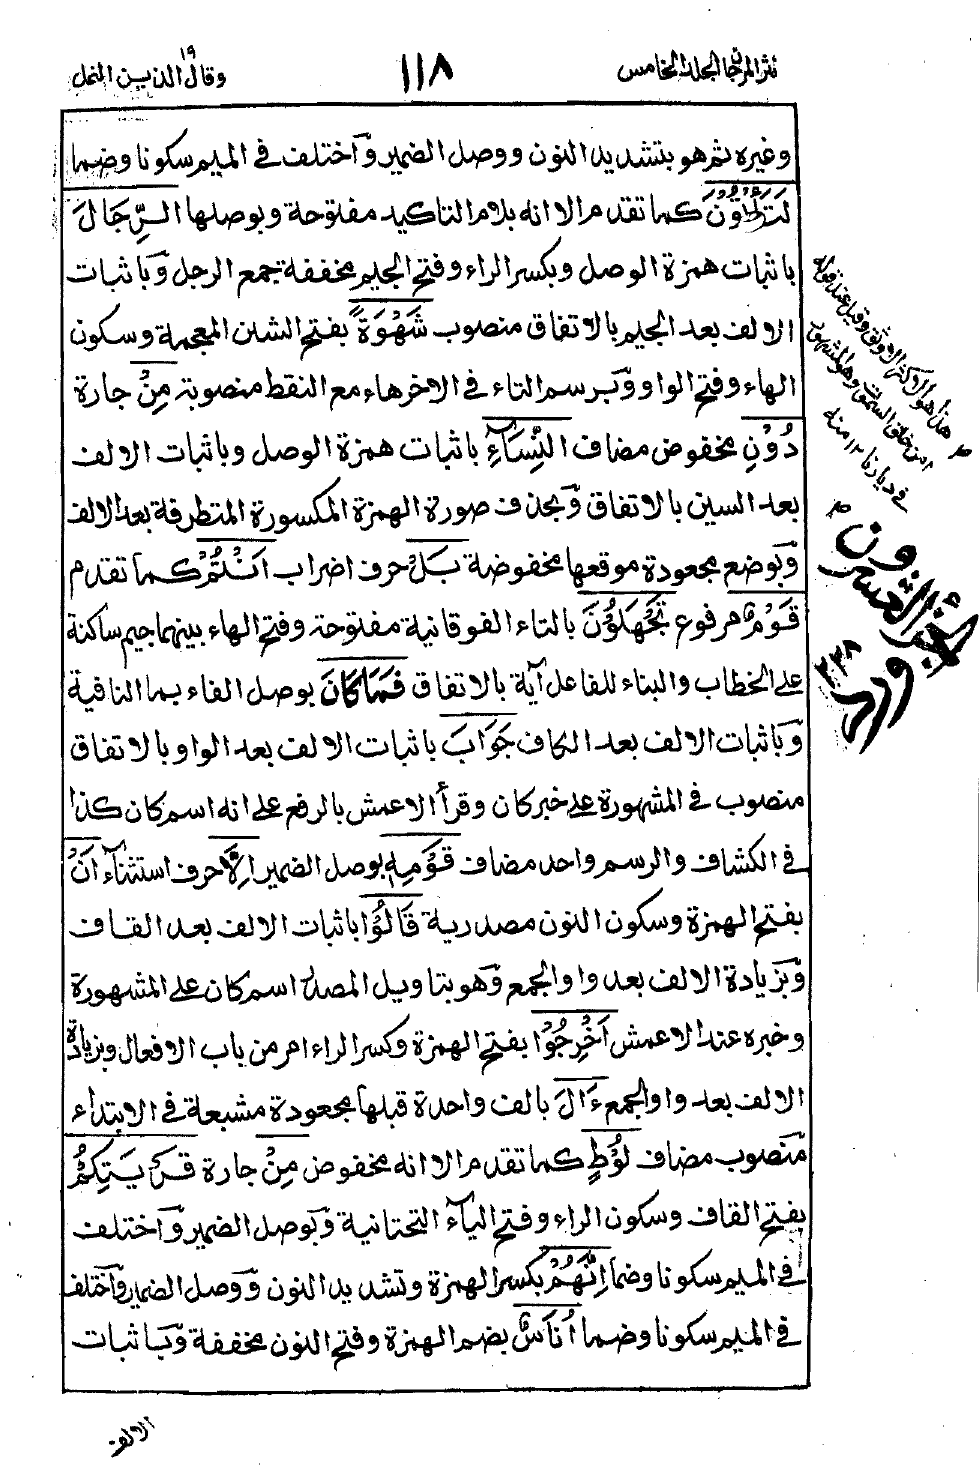 نثر المرجان المجلد الخامس
١١٨
وقال الذين ١٩ النمل
وغيره ثم هو بتشديد النون ووصل الضمير وٓاختلف في الميم سكونا وضما
لَتَأْتُوْنَ كما تقدم الا انه بلام التاكيد مفتوحة وبوصلها الرِّجَالَ
باثبات همزة الوصل وبكسر الراء وفتح الجيم مخففة جمع الرجل وٓباثبات
الالف بعد الجيم بالاتفاق منصوب شَهْوَةً بفتح الشين المعجمة وسكون
الهاء وفتح الواو وٓبرسم التاء في الاخر هاء مع النقط منصوبة مِنْ جارة
دُوْنِ مخفوض مضاف النِّسَآءِ باثبات همزة الوصل وباثبات الالف
بعد السين بالاتفاق وٓبحذف صورة الهمزة المكسورة المتطرفة بعد الالف
وٓبوضع مجعودة موقعها مخفوضة بَلْ حرف اضراب اَنْتُمْ كما تقدم
قَوْمٌ مرفوع تَجْهَلُوْنَ بالتاء الفوقانية مفتوحة وفتح الهاء بينهما جيم ساكنة
على الخطاب والبناء للفاعل آية بالاتفاق فَمَا كَانَ بوصل الفاء بما النافية
وٓباثبات الالف بعد الكاف جَوَابَ باثبات الالف بعد الواو بالاتفاق
منصوب في المشهورة على خبر كان وقرأ الاعمش بالرفع على انه اسم كان كذا
في الكشاف والرسم واحد مضاف قَوْمِهٖ بوصل الضمير اِلَّا حرف استثناء اَنْ
بفتح الهمزة وسكون النون مصدرية قَالُوْا باثبات الالف بعد القاف
وٓبزيادة الالف بعد واو الجمع وٓهو بتاويل المصدر اسم كان على المشهورة
وخبره عند الاعمش اَخْرِجُوْا بفتح الهمزة وكسر الراء امر من باب الافعال وبزيادة
الالف بعد واو الجمع ءَالَ بالف واحدة قبلها مجعودة مشبعة في الابتداء
منصوب مضاف لُوْطٍ كما تقدم الا انه مخفوض مِنْ جارة قَرْيَتِكُمْ
بفتح القاف وسكون الراء وفتح الياء التحتانية وٓبوصل الضمير وٓاختلف
في الميم سكونا وضما اِنَّهُمْ بكسر الهمزة وتشديد النون وٓوصل الضمير وٓاختلف
في الميم سكونا وضما اُنَاسٌ بضم الهمزة وفتح النون مخففة وٓباثبات
الالف
هذا هو الاكثر الاوثق وقيل عند قوله
امن خلق السموت وهو المشهور
في ديارنا ١٢ منه
الجزء العشرون